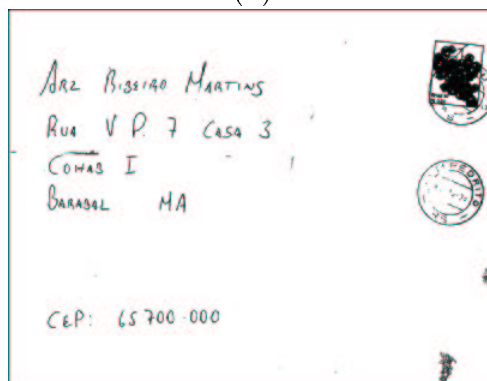 ARZ RIBEIRO MARTINS
RUA V P. 7 CASA 3
COHAB I
BACABAL MA
PEDRITO
CEP: 65700-000